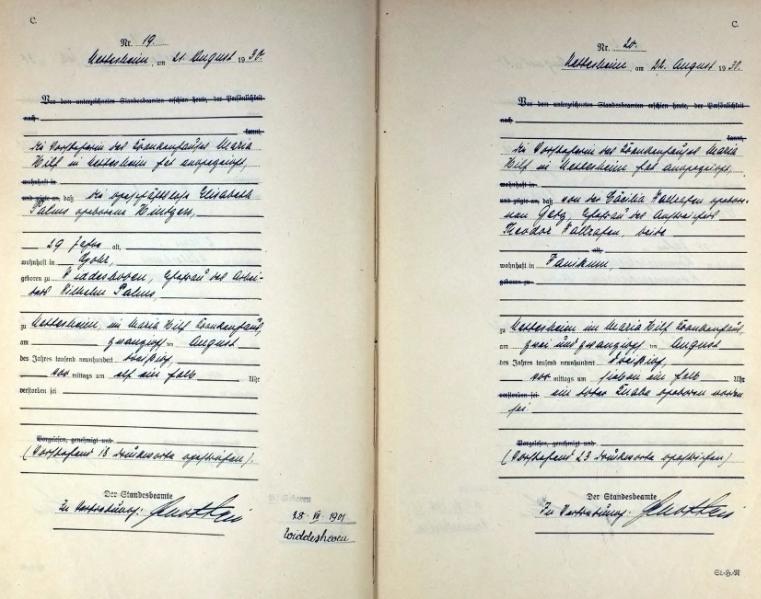 C.
Nr. 19.
Nettesheim, am 21. August 1930.
Vor dem unterzeichneten Standesbeamten erschien heute, der Persönlichkeit
nach
kannt,
Die Vorsteherin des Krankenhauses Maria
Hilf in Nettesheim hat angezeigt,
wohnhaft in
und zeigte an, daß die geschäftslose Elisabeth
Palms geborene Hintzen,
29 Jahre alt,
wohnhaft in Gohr,
geboren zu Widdeshoven, Ehefrau des Arbei-
ters Wilhelm Palms,
zu Nettesheim, im Maria Hilf Krankenhaus,
am zwanzigsten August
des Jahres tausend neunhundert dreißig,
vor mittags um elf ein halb Uhr
verstorben sei
Vorgelesen, genehmigt und
(Vorstehend 13 Druckworte gestrichen).
Der Standesbeamte
In Vertretung:
28. VI. 1901
Widdeshoven
C.
Nr. 20.
Nettesheim, am 22. August 1930.
Vor dem unterzeichneten Standesbeamten erschien heute, der Persönlichkeit
nach
kannt,
Die Vorsteherin des Krankenhauses Maria
Hilf in Nettesheim hat angezeigt,
wohnhaft in
und zeigte an, daß von der Cäcilia gebore-
nen Ehefrau des Anstreichers
Theodor beide
alt,
wohnhaft in Vanikum,
geboren zu
zu Nettesheim im Maria Hilf Krankenhaus,
am zwei und zwanzigsten August
des Jahres tausend neunhundert dreißig
vor mittags um sieben ein halb Uhr
verstorben sei ein toter Knabe geboren worden
sei
Vorgelesen, genehmigt und
(Vorstehend 23 Druckworte gestrichen)
Der Standesbeamte
In Vertretung: